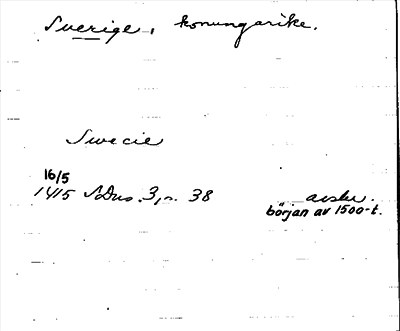 Sverige, konungarike.
Swecie
16/5
1415 SDns. 3, n. 38 avskr.
början av 1500-t.